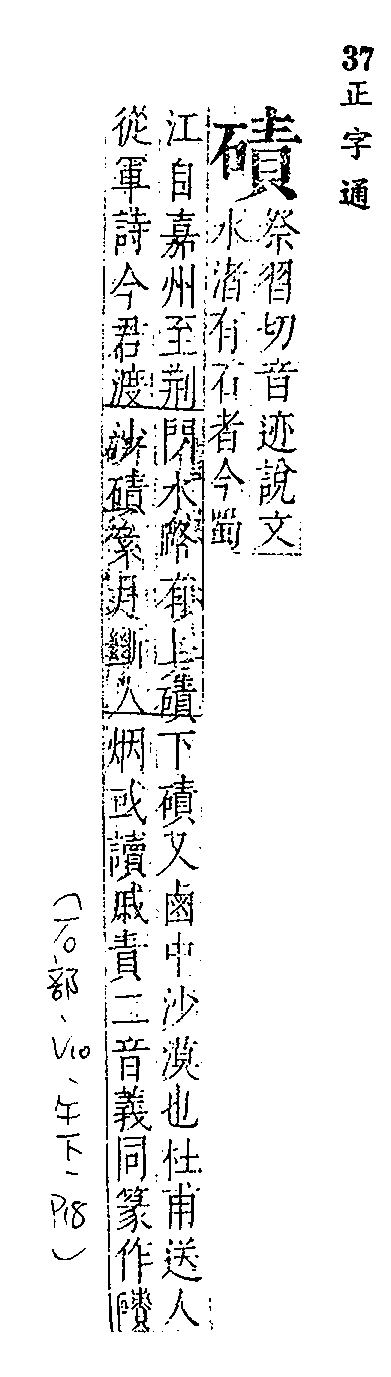 37正字通
磧
祭習切音迹說文
水渚有石者今蜀
江自嘉州至荆閒水路有上磧下磧又鹵中沙漠也杜甫送人
從軍詩今君渡沙磧累月斷人烟或讀戚責二音義同篆作
(石部、V10、午下、P18)